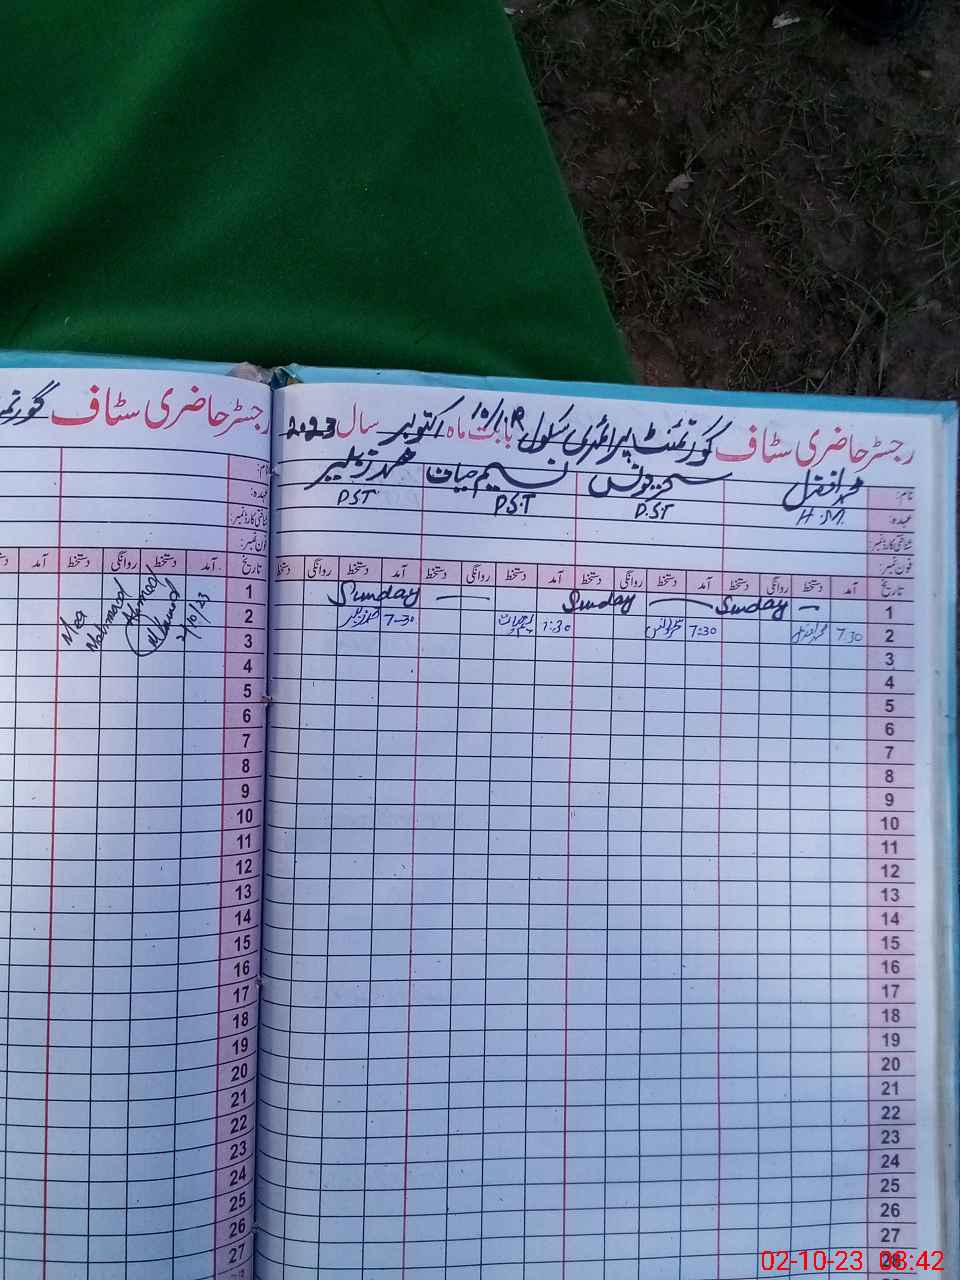 رجسٹر حاضری سٹاف گورنمنٹ پرائمری سکول 10/1R بابت ماہ اکتوبر سال 2023
نام: محمد افضل نسیم حیات محمد زبیر
عہدہ: H.M. P.S.T P.S.T PST
شناختی کارڈ نمبر:
فون نمبر:
تاریخ آمد دستخط روانگی دستخط آمد دستخط روانگی دستخط آمد دستخط روانگی دستخط آمد دستخط روانگی دستخط
1 Sunday Sunday Sunday
2 7:30 7:30 7:30 7-30
3
4
5
6
7
8
9
10
11
12
13
14
15
16
17
18
19
20
21
22
23
24
25
26
27
28
رجسٹر حاضری سٹاف
نام:
عہدہ:
شناختی کارڈ نمبر:
فون نمبر:
تاریخ آمد دستخط روانگی دستخط آمد
1
2 Mahmood Ahmed 2/10/23
3
4
5
6
7
8
9
10
11
12
13
14
15
16
17
18
19
20
21
22
23
24
25
26
27
02-10-23 08:42